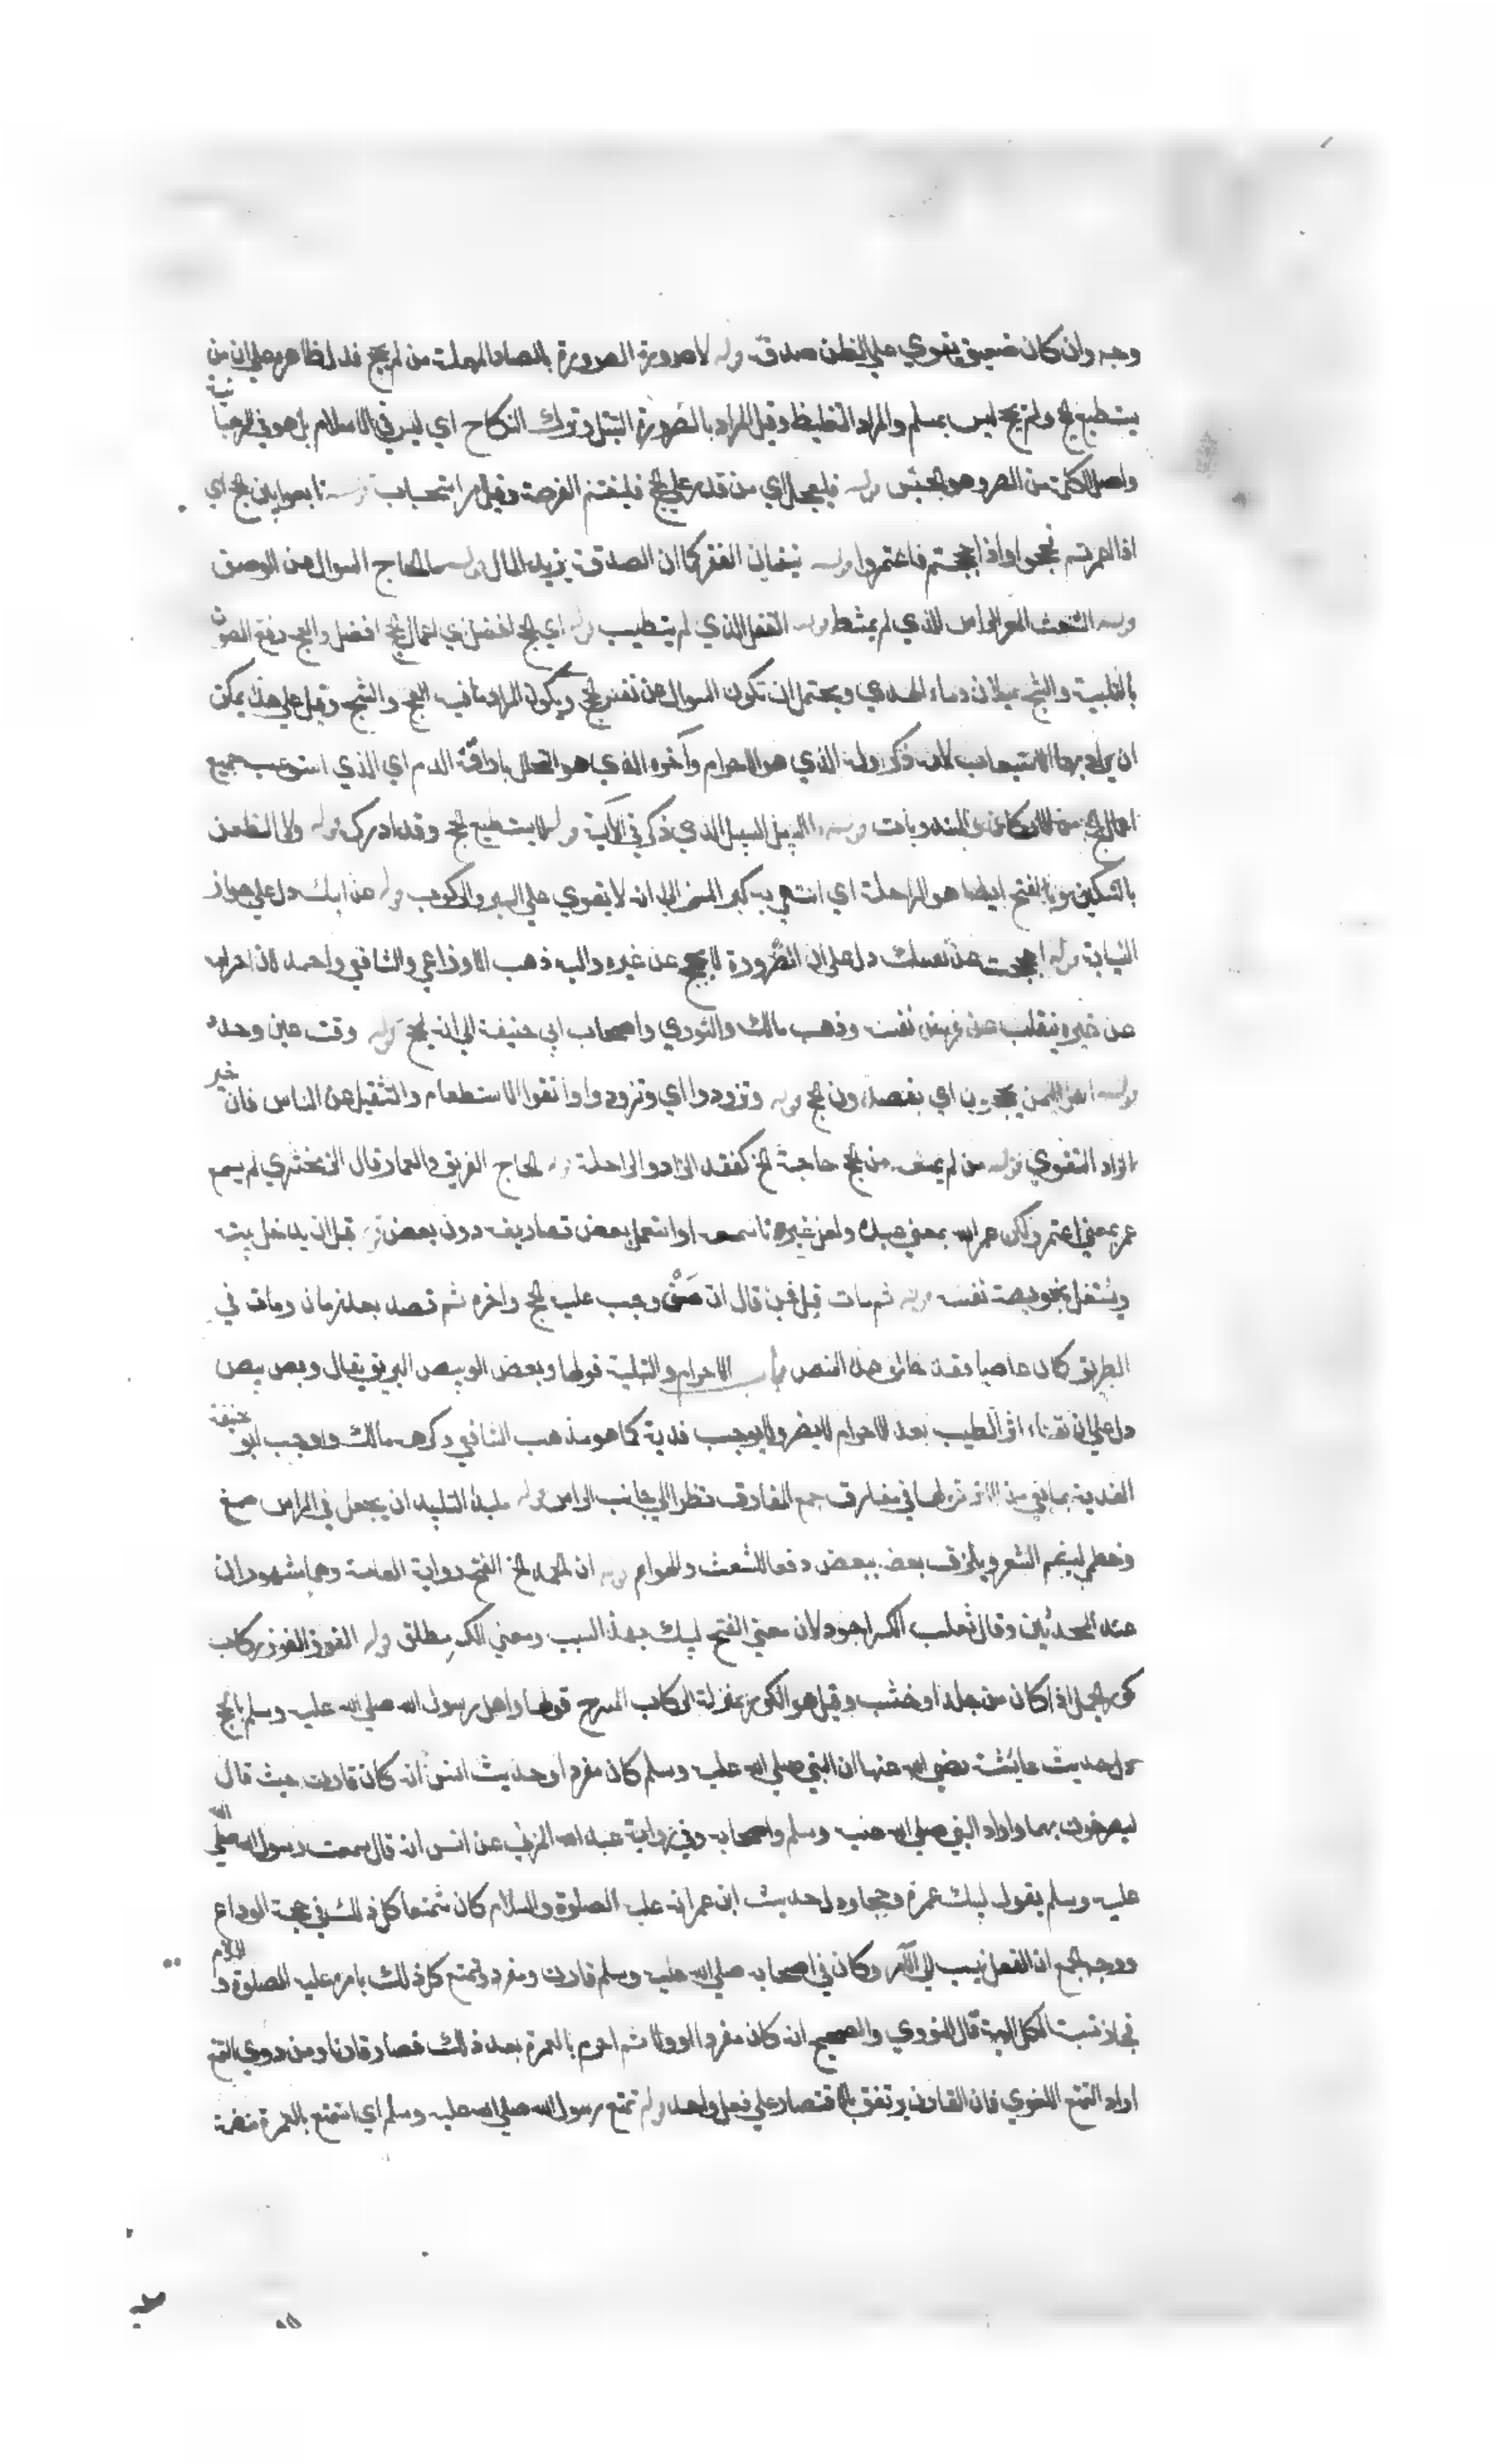 وجه وان كان ضعيف يقوي علي الظن صدقه قوله لا صرورة الصرورة بالصاد المهملة من لم يحج فدل ظاهره علي ان من
يستطيع الحج ولم يحج ليس بمسلم والمراد التغليظ وقيل المراد بالصرورة التبتل وترك النكاح اي ليس في الاسلام بل هو في الرهبانية
واصل الكلمة من الصر وهو الحبس قوله فليعجل اي من قدر علي الحج فليغتنم الفرصة وقيل امر استحباب قوله تابعوا بين الحج اي
اذا اعتمرتم فحجوا واذا حججتم فاعتمروا قوله ينفيان الفقر كما ان الصدقة يزيد المال قوله ما الحاج السوال عن الوصف
قوله الشعث المغبر الراس الذي لم يمتشط قوله التفل الذي لم يتطيب قوله اي الحج افضل اي اعمال الحج افضل والعج رفع الصوت
بالتلبية والثج سيلان دماء الهدي ويحتمل ان تكون السوال عن نفس الحج ويكون المراد ما فيه العج والثج وقيل علي هذا يمكن
ان يراد بهما الاستيعاب لانه ذكر اوله الذي هو الاحرام وآخره الذي هو التحلل باراقة الدم اي الذي استوعب جميع
اعمال الحج من الاركان والمندوبات قوله السبيل السبيل الذي ذكر في الآية قوله لا يستطيع الحج وقد ادرك قوله ولا الظعن
بالتسكين وبالفتح ايضا هو الراحلة اي انتهي به كبر السن الي ان لا يقوي علي السير والركوب قوله عن ابيك دل علي جواز
النيابة قوله احججت عن نفسك دل علي ان الصرورة لا يحج عن غيره واليه ذهب الاوزاعي والشافعي واحمد لان احرامه
عن غيره ينقلب عن فرض نفسه وذهب مالك والثوري واصحاب ابي حنيفة الي انه يحج قوله وقت عين وحده
قوله اهل اليمن يحجون اي يقصدون الحج قوله وتزودوا اي وتزودوا واتقوا الاستطعام والتثقيل علي الناس فان خير
الزاد التقوي قوله من لم يمنعه من الحج حاجة الخ كفقد الزاد والراحلة قوله الحاج الفريق والعمار قال الزمخشري لم يسمع
عمر بمعني اعتمر ولكن عمر الله بمعني عبده ولعل غيره ناسمعه او استعمل بعض تصاريفه دون بعض قوله قبل ان يدخل بيته
ويشتغل بخويصة نفسه قوله ثم مات قيل فمن قال ان مَنْ وجب عليه الحج واخره ثم قصد بعد زمان ومات في
الطريق كان عاصيا فقد خالف هذا النص باب الاحرام والتلبية قولها وبيص الوبيص البريق يقال وبص يبص
دل علي ان بقاء اثر الطيب بعد الاحرام لا يضر ولا يوجب فدية كما هو مذهب الشافعي وكرهه مالك واوجب ابو حنيفة
الفدية بما بقي من الاثر قولها في مفارق جمع المفارق نظرا الي جانب الراس قوله ملبدا التلبيد ان يجعل في الراس صمغ
وخطمي ليضم الشعر ويلزق بعضه ببعض دفعا للشعث والهوام قوله ان الحمد الخ الفتح رواية العامة وهما مشهوران
عند المحدثين وقال ثعلب الكسر اجود لان معني الفتح لبيك بهذا السبب ومعني الكسر مطلق قوله الغرز الغرز ركاب
كور الجمل اذا كان من جلد او خشب وقيل هو الكور بمنزلة الركاب للسرج قولها واهل رسول الله صلي الله عليه وسلم بالحج
دل حديث عائشة رضي الله عنها ان النبي صلي الله عليه وسلم كان مفردا وحديث انس انه كان قارنا حيث قال
ليصرخون بهما واراد النبي صلي الله عليه وسلم واصحابه وفي رواية عبد الله المزني عن انس انه قال سمعت رسول الله صلي الله
عليه وسلم يقول لبيك عمرة وحجا ودل حديث ابن عمر انه عليه الصلوة والسلام كان متمتعا كل ذلك في حجة الوداع
ووجه الجمع ان الفعل ينسب الي الآمر وكان في اصحابه صلي الله عليه وسلم قارن ومفرد ومتمتع كل ذلك بامره عليه الصلوة والسلام
فجاز نسبة الكل اليه قال النووي والصحيح انه كان مفردا اولا ثم احرم بالعمرة بعد ذلك فصار قارنا ومن روي التمتع
اراد التمتع اللغوي فان القارن يرتفق بالاقتصار علي فعل واحد قوله تمتع رسول الله صلي الله عليه وسلم اي استمتع بالعمرة منضمة